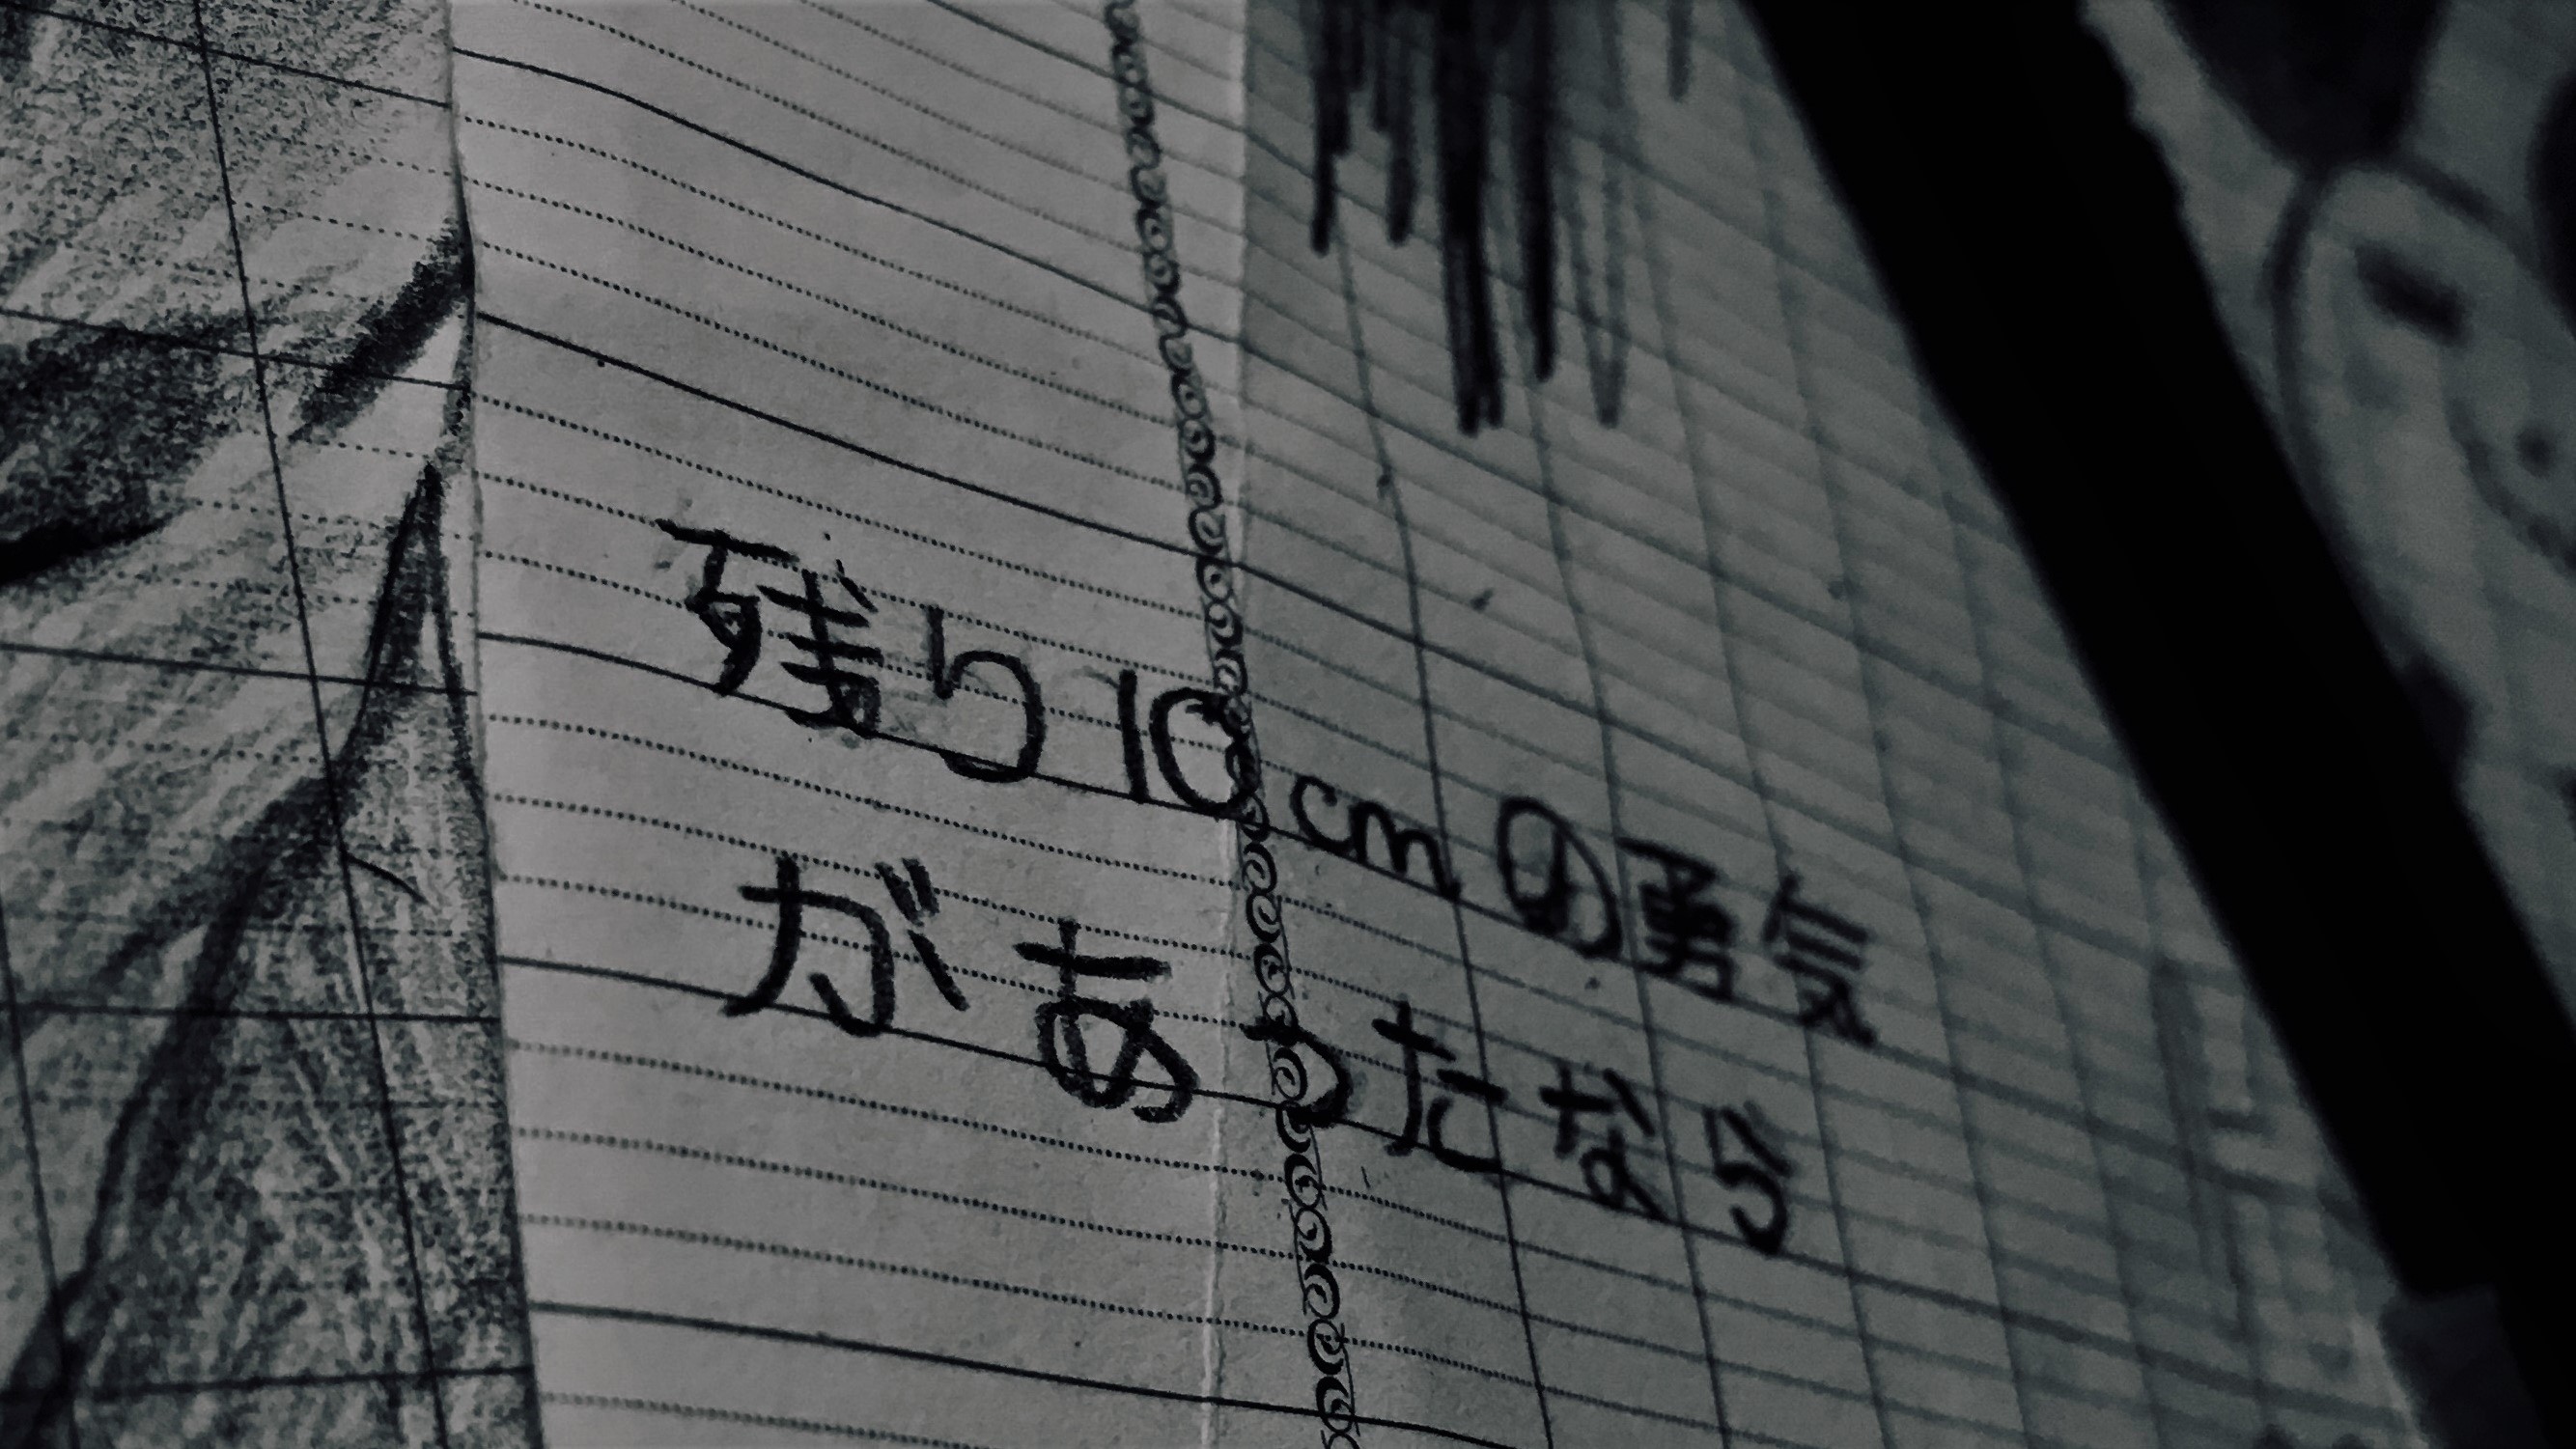 残り10cmの勇気
があったなら